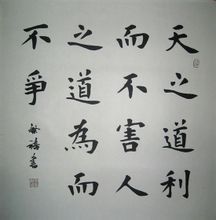 天之道利
而不害人
之道為而
不爭
書